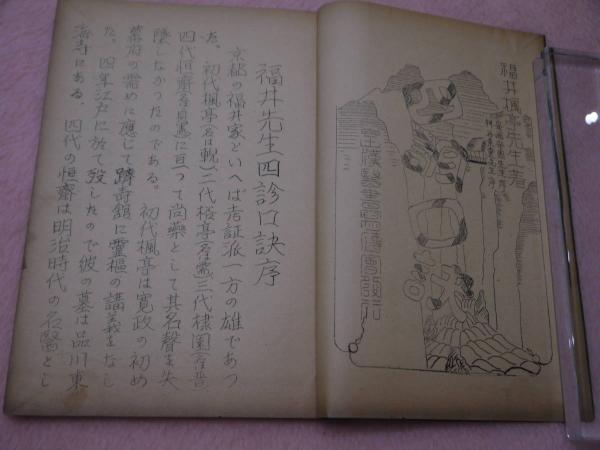 福井楓亭先生著
四診口訣
福井先生四診口訣序
京都の福井家といへば考証派一方の雄であつ
た。初代楓亭(名は輗)二代榕亭(名需)三代棣園(名晋)
四代恒斎(名貞憲)に亘つて尚薬として其名聲を失
墜しなかつたのである。初代楓亭は寛政の初め
幕府の需めに應じて躋寿舘に靈樞の講義をなし
た。四年江戸に於て歿したので彼の墓は品川東
海寺にある。四代の恒斎は明治時代の名醫とし